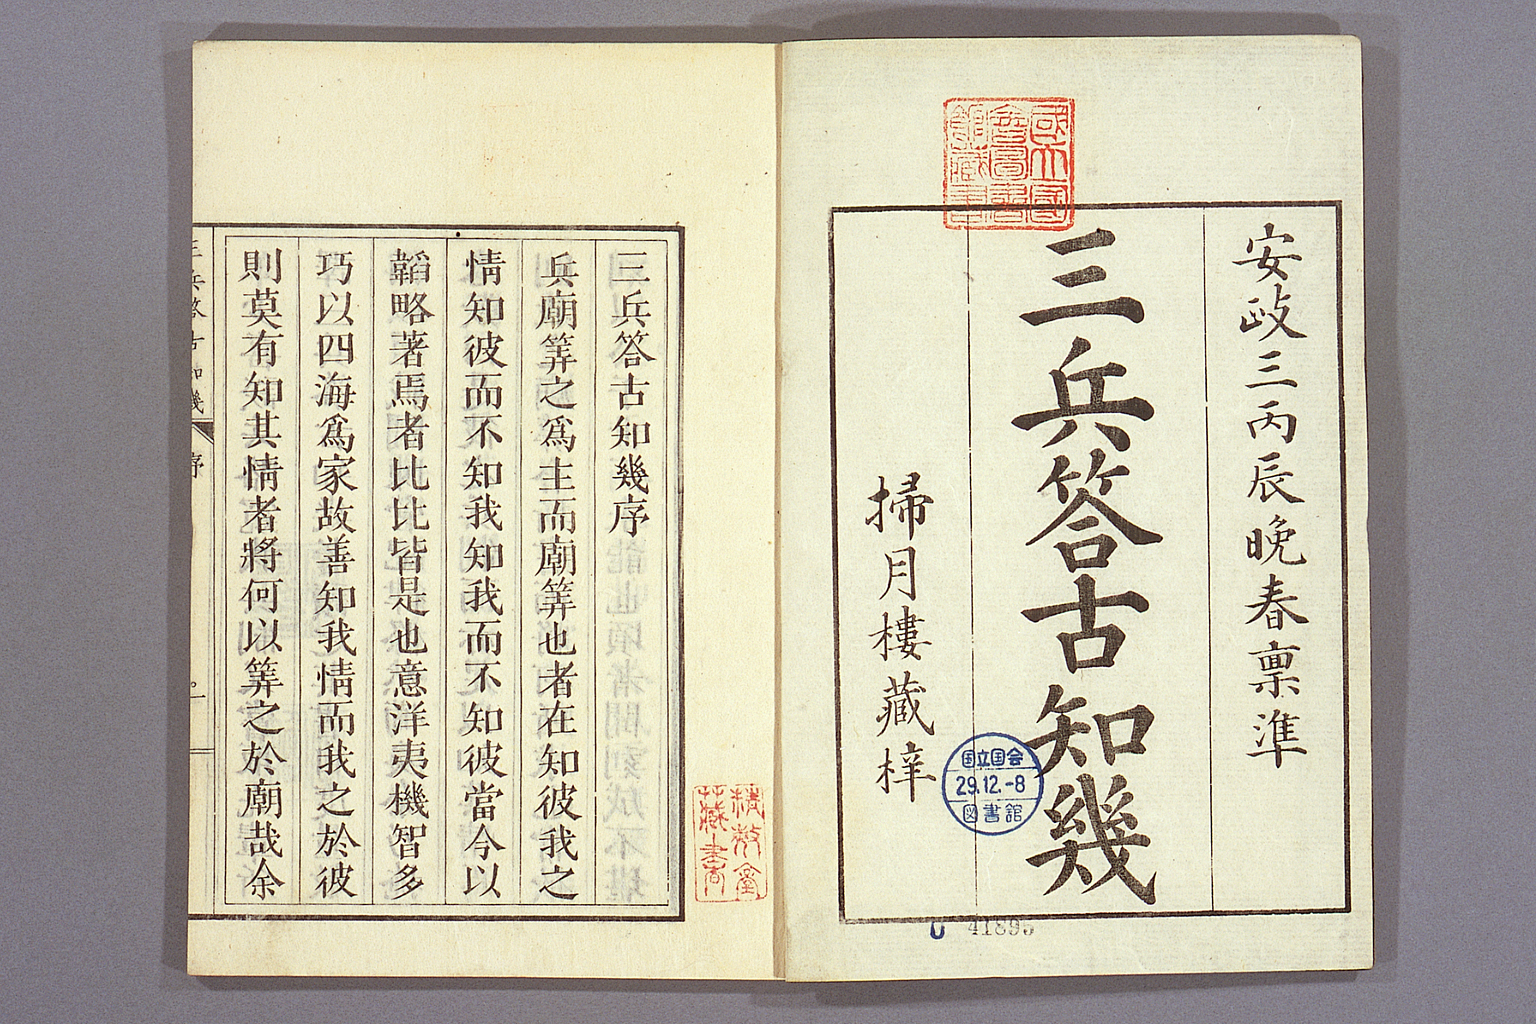 安政三丙辰晩春稟準
三兵答古知幾
掃月樓藏梓
國立國
會圖書
館藏書
国立国会
29.12.-8
図書館
41895
三兵答古知幾序
兵廟筭之爲主而廟筭也者在知彼我之
情知彼而不知我知我而不知彼當今以
韜略著焉者比比皆是也意洋夷機智多
巧以四海爲家故善知我情而我之於彼
則莫有知其情者將何以筭之於廟哉余
三兵答古知幾
序
一
藏書